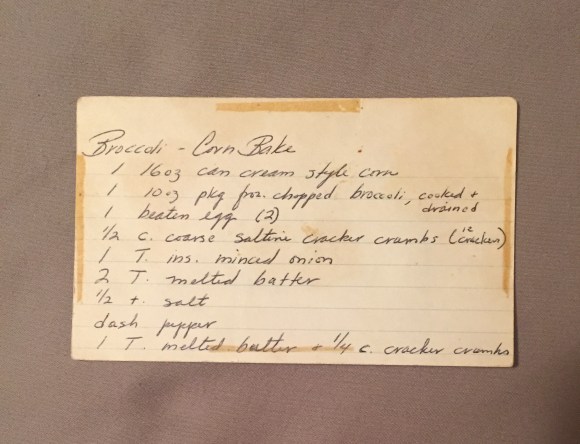 Broccoli - Corn Bake
1 16 oz can cream style corn
1 10 oz pkg froz. chopped broccoli, cooked + drained
1 beaten egg (2)
1/2 c. coarse saltine cracker crumbs (12 cracker)
1 T. ins. minced onion
2 T. melted butter
1/2 t. salt
dash pepper
1 T. melted butter + 1/4 c. cracker crumbs